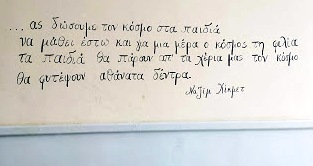 ... ας δώσουμε τον κόσμο στα παιδιά
να μάθει έστω και για μια μέρα ο κόσμος τη φιλία
τα παιδιά θα πάρουν απ' τα χέρια μας τον κόσμο
θα φυτέψουν αθάνατα δέντρα.
Ναζίμ Χικμέτ